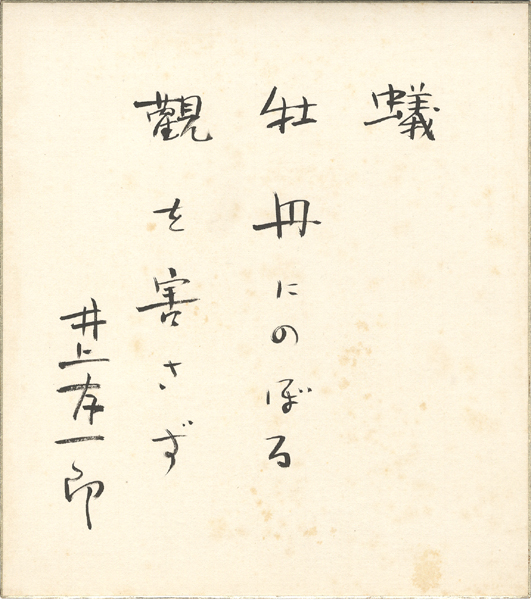 蟻
牡丹にのぼる
觀を害さず
井上友一郎